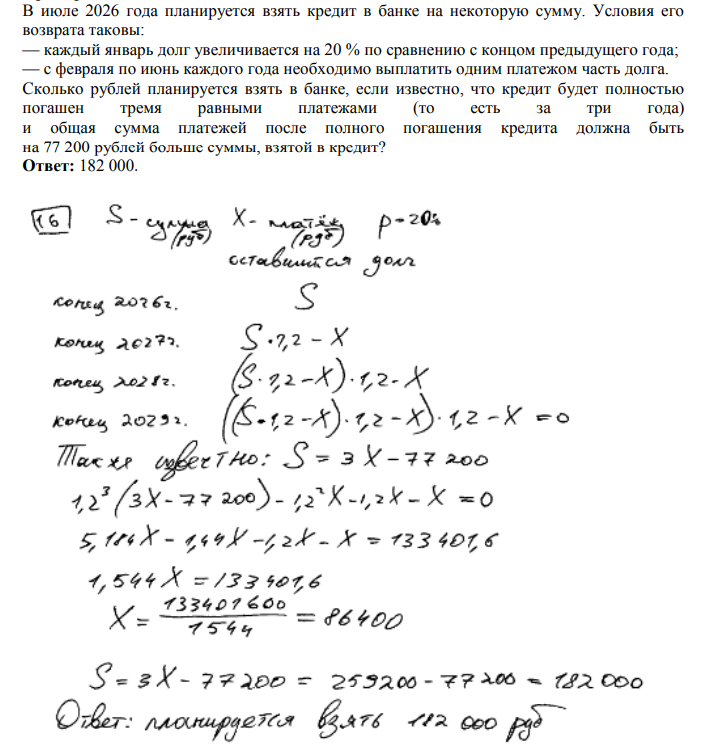 В июле 2026 года планируется взять кредит в банке на некоторую сумму. Условия его
возврата таковы:
— каждый январь долг увеличивается на 20 % по сравнению с концом предыдущего года;
— с февраля по июнь каждого года необходимо выплатить одним платежом часть долга.
Сколько рублей планируется взять в банке, если известно, что кредит будет полностью
погашен тремя равными платежами (то есть за три года)
и общая сумма платежей после полного погашения кредита должна быть
на 77 200 рублей больше суммы, взятой в кредит?
Ответ: 182 000.
16 S - сумма (руб) X - платёж (руб) p = 20%
оставшийся долг
конец 2026г. S
конец 2027г. S·1,2 - X
конец 2028г. (S·1,2 - X)·1,2 - X
конец 2029г. ((S·1,2 - X)·1,2 - X)·1,2 - X = 0
Также известно: S = 3X - 77 200
1,2³(3X - 77 200) - 1,2²X - 1,2X - X = 0
5,184X - 1,44X - 1,2X - X = 133 401,6
1,544X = 133 401,6
X = 133401600/1544 = 86400
S = 3X - 77 200 = 259200 - 77 200 = 182 000
Ответ: планируется взять 182 000 руб